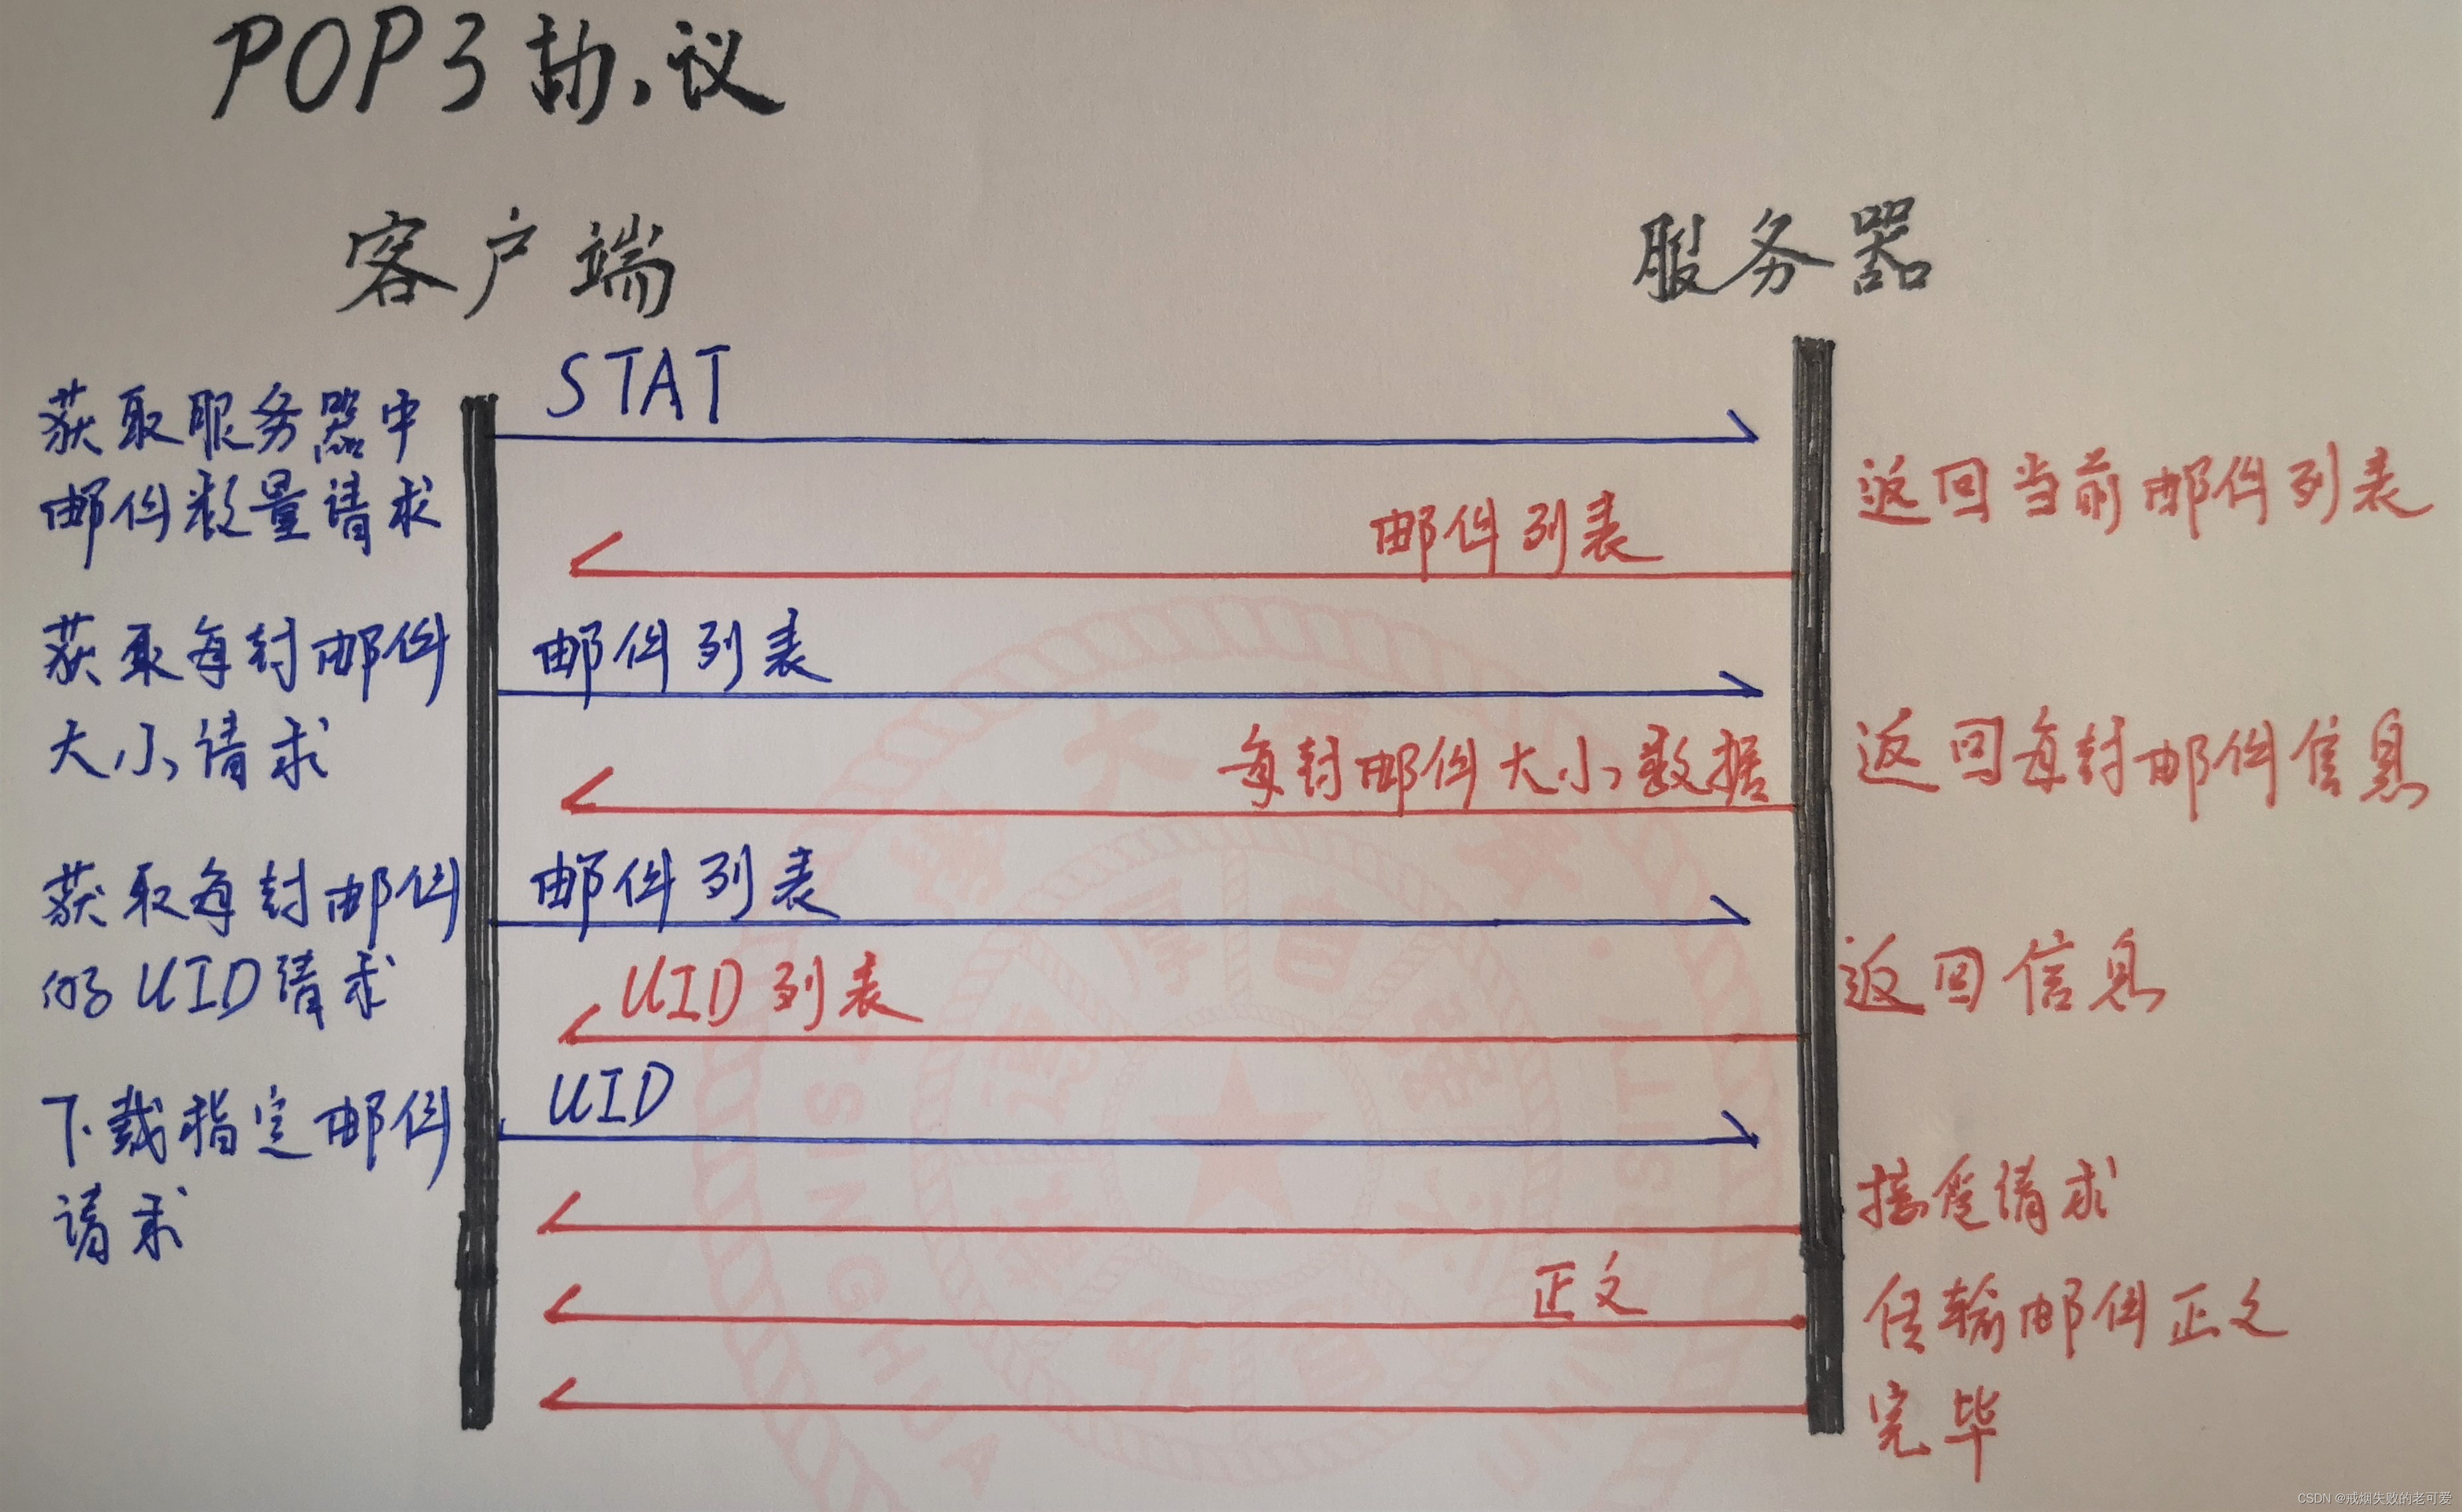 POP3协议
客户端
服务器
STAT
获取服务器中
邮件数量请求
返回当前邮件列表
邮件列表
获取每封邮件
大小请求
邮件列表
每封邮件大小数据
返回每封邮件信息
获取每封邮件
的UID请求
邮件列表
UID列表
返回信息
下载指定邮件
请求
UID
接受请求
正文
传输邮件正文
完毕
CSDN @戒烟失败的老可爱